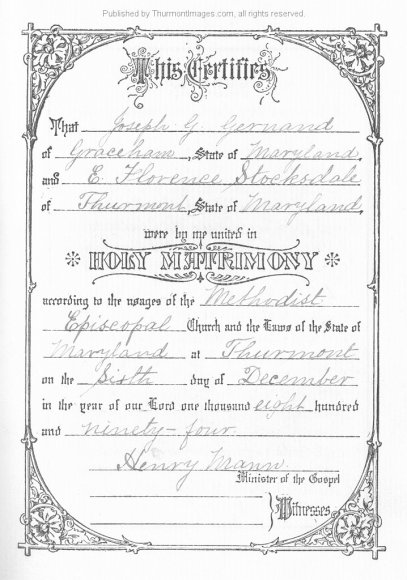 Published by ThurmontImages.com, all rights reserved.
This Certifies
That Joseph G Gernand
of Graceham, State of Maryland,
and E. Florence Stocksdale
of Thurmont, State of Maryland,
were by me united in
HOLY MATRIMONY
according to the usages of the Methodist
Episcopal Church and the Laws of the State of
Maryland at Thurmont
on the Sixth day of December
in the year of our Lord one thousand eight hundred
and ninety-four.
Henry Mann.
Minister of the Gospel
Witnesses